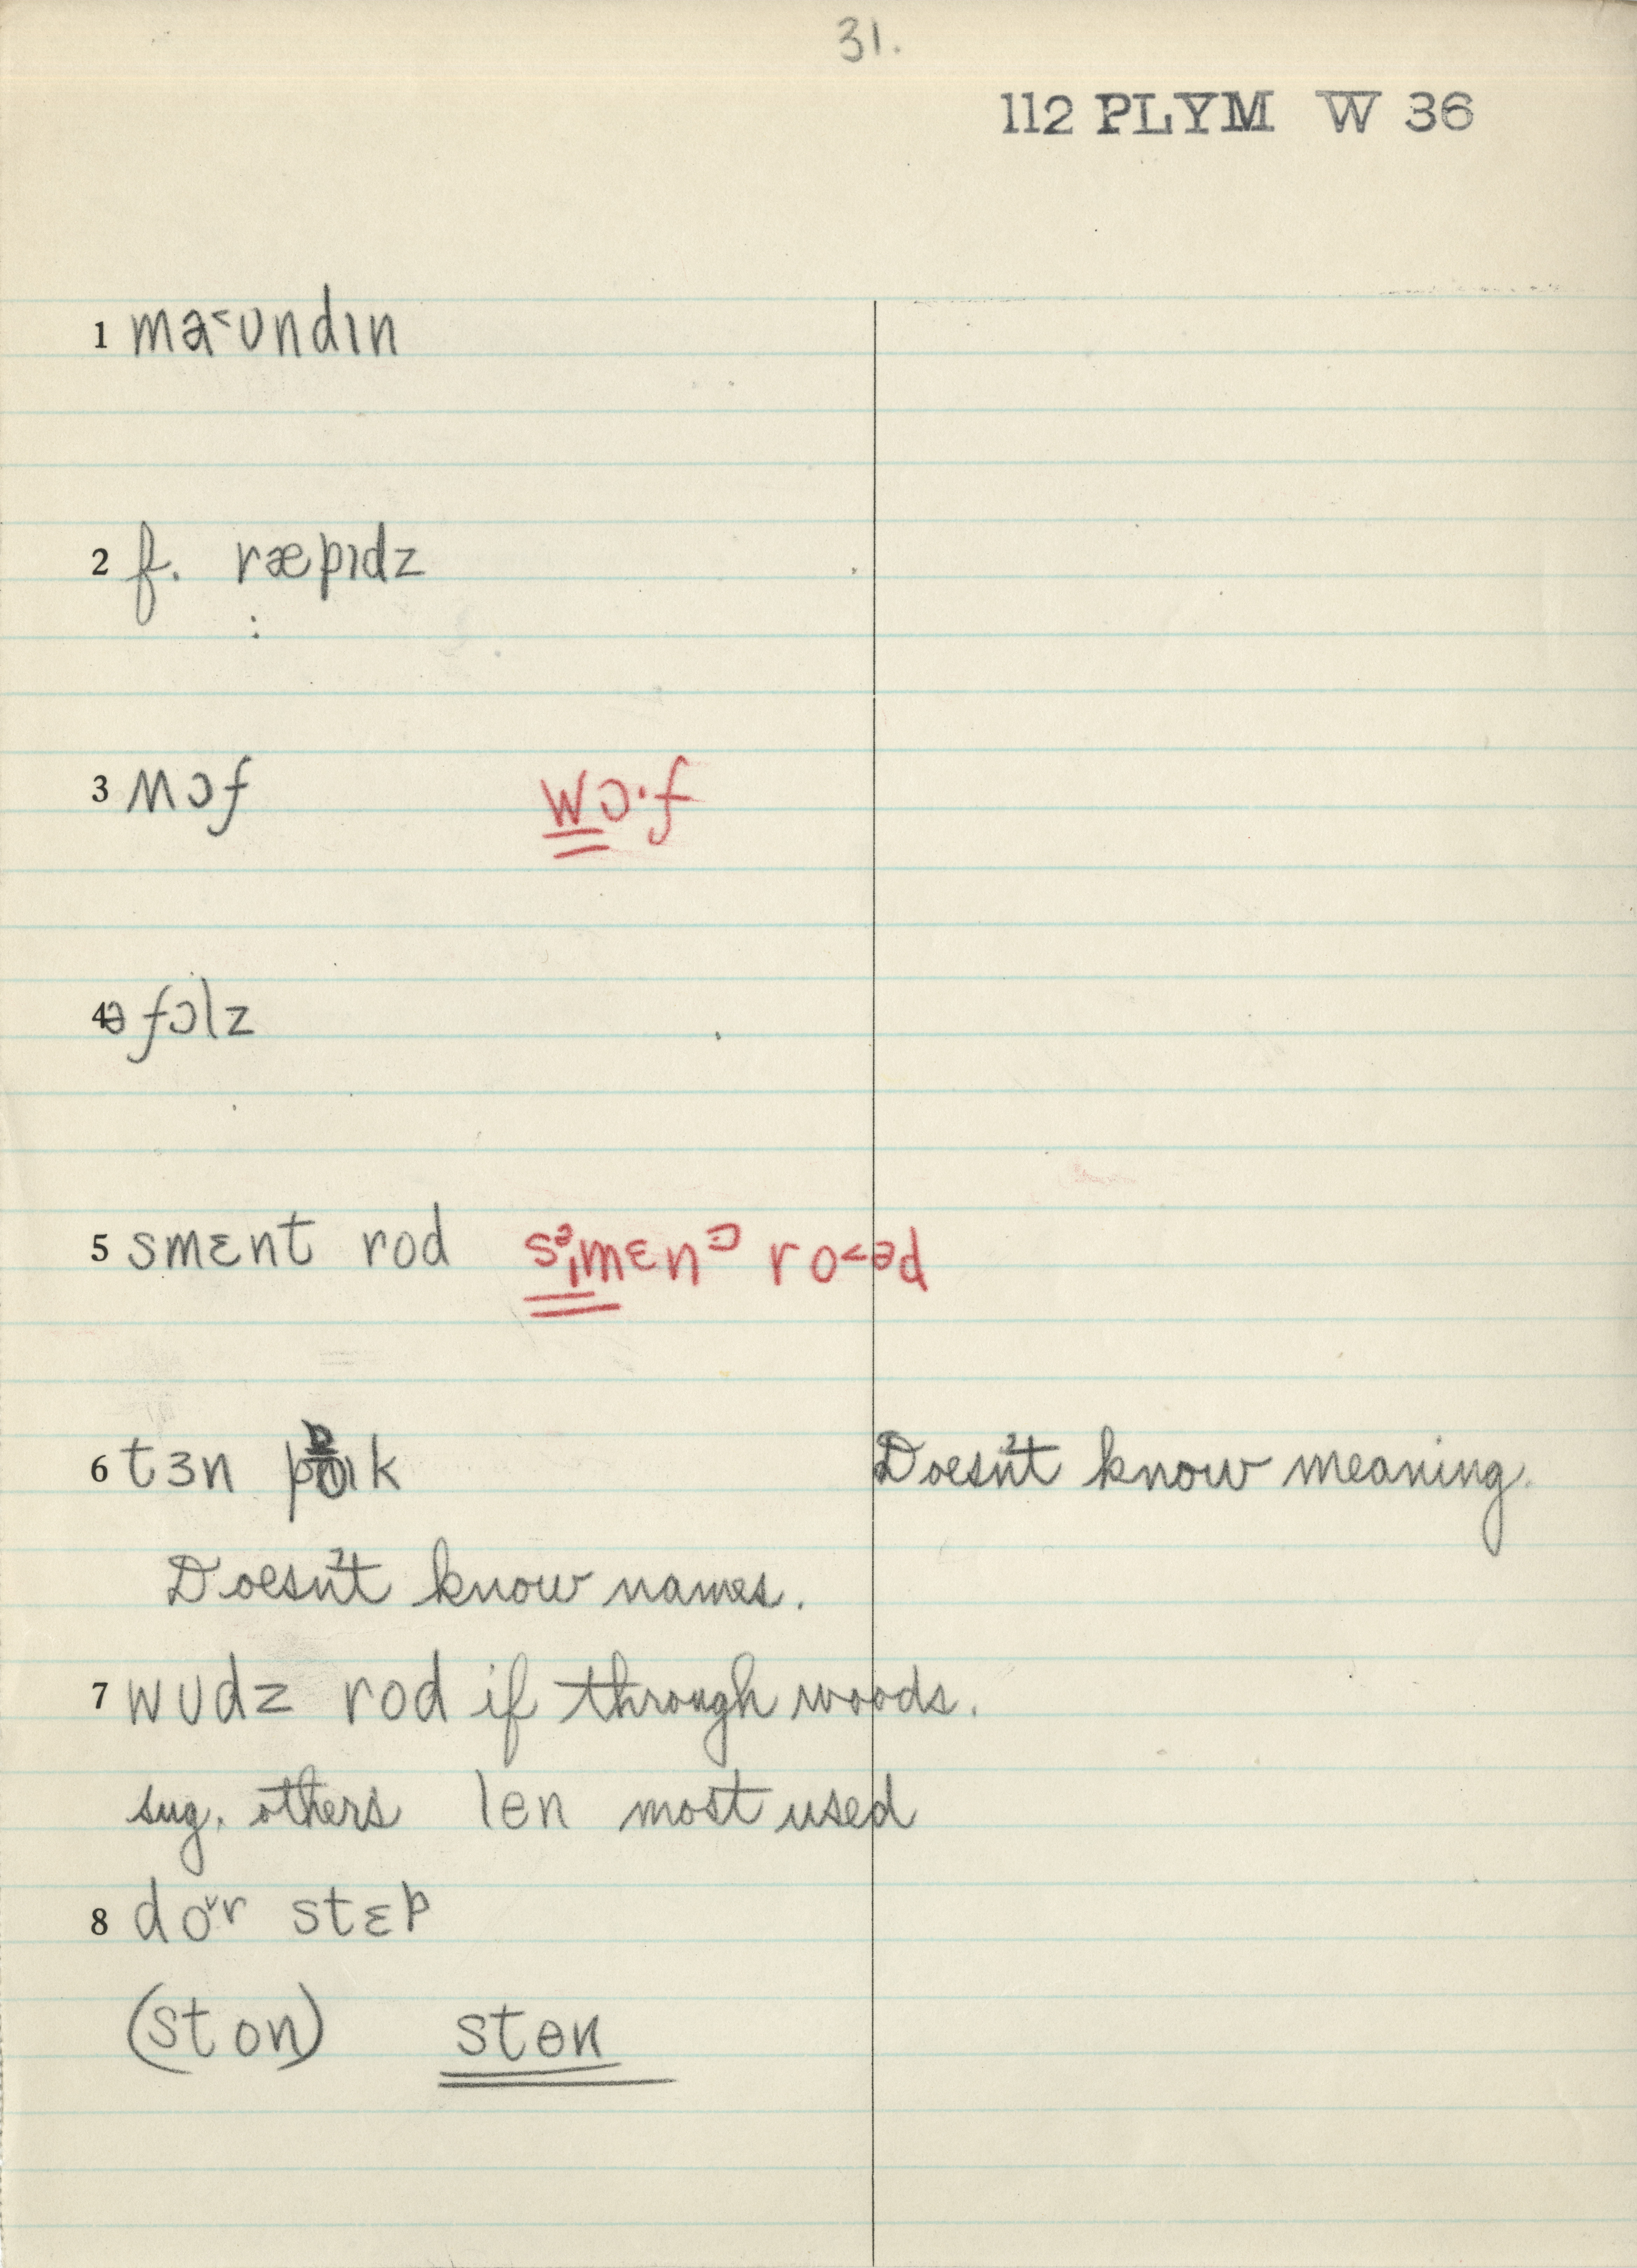 31.
112 PLYM W 36
1 ma˂ʊndɪn
2 f. ræpɪdz
3 ʍɔf wɔ·f
4 ə fɔlz
5 smɛnt rod sᵊɪmɛnᵓ ro˂əd
6 tɜn pɒɪk Doesn't know meaning.
Doesn't know names.
7 wʊdz rod if through woods.
sug. others len most used
8 do˅r stɛp
(ston) stɵn